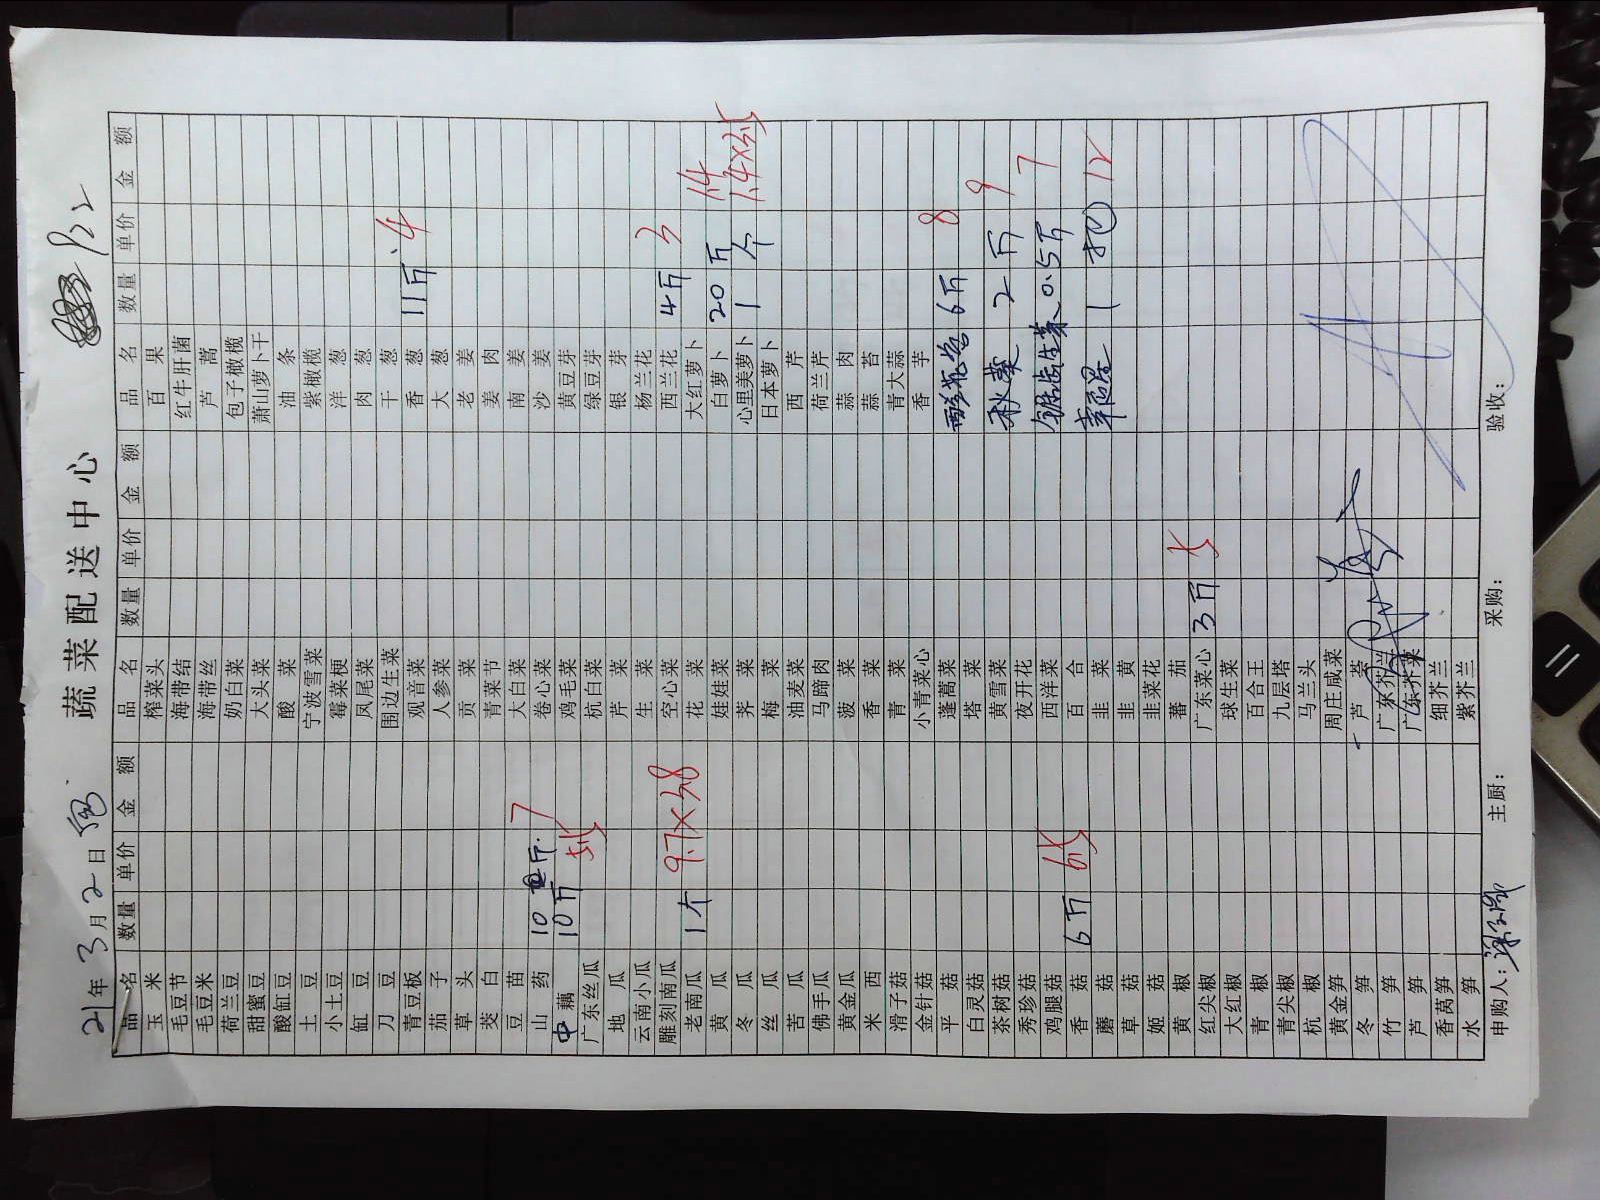 蔬菜配送中心
21年3月2日
品名 数量 单价 金额 品名 数量 单价 金额 品名 数量 单价 金额
玉米 榨菜头 百果
毛豆节 海带结 红牛肝菌
毛豆米 海带丝 芦蒿
荷兰豆 奶白菜 包子橄榄
甜蜜豆 大头菜 萧山萝卜干
酸缸豆 酸菜 油条
土豆 宁波雪菜 紫橄榄
小土豆 霉菜梗 洋葱
缸豆 凤尾菜 肉葱
刀豆 围边生菜 干葱
青豆板 观音菜 香葱 11斤 4
茄子 人参菜 大葱
草头 贡菜 老姜
茭白 青菜节 姜肉
豆苗 大白菜 南姜
山药 10斤 7 卷心菜 沙姜
中藕 10斤 5.5 鸡毛菜 黄豆芽
广东丝瓜 杭白菜 绿豆芽
地瓜 芹菜 银芽
云南小瓜 生菜 杨兰花
雕刻南瓜 空心菜 西兰花 4斤 3
老南瓜 1个 9.7×3.8 花菜 大红萝卜
黄瓜 娃娃菜 白萝卜 20斤 1.4
冬瓜 荠菜 心里美萝卜 1个 1.4×3.5
丝瓜 梅菜 日本萝卜
苦瓜 油麦菜 西芹
佛手瓜 马蹄肉 荷兰芹
黄金瓜 菠菜 蒜肉
米西 香菜 蒜苔
滑子菇 青菜 青大蒜
金针菇 小青菜心 香芋
平菇 蓬蒿菜 6斤 8
白灵菇 塔菜
茶树菇 黄雪菜 秋葵 2斤 9
秀珍菇 夜开花
鸡腿菇 西洋菜 锯齿生菜 0.5斤 7
香菇 6斤 6.5 百合
蘑菇 韭菜 1把 12
草菇 韭黄
姬菇 韭菜花
黄椒 蕃茄
红尖椒 广东菜心 3斤 5
大红椒 球生菜
青椒 百合王
青尖椒 九层塔
杭椒 马兰头
黄金笋 周庄咸菜
冬笋 芦荟
竹笋 广东芥兰
芦笋 广东芥菜
香莴笋 细芥兰
水笋 紫芥兰
申购人: 主厨: 采购: 验收: